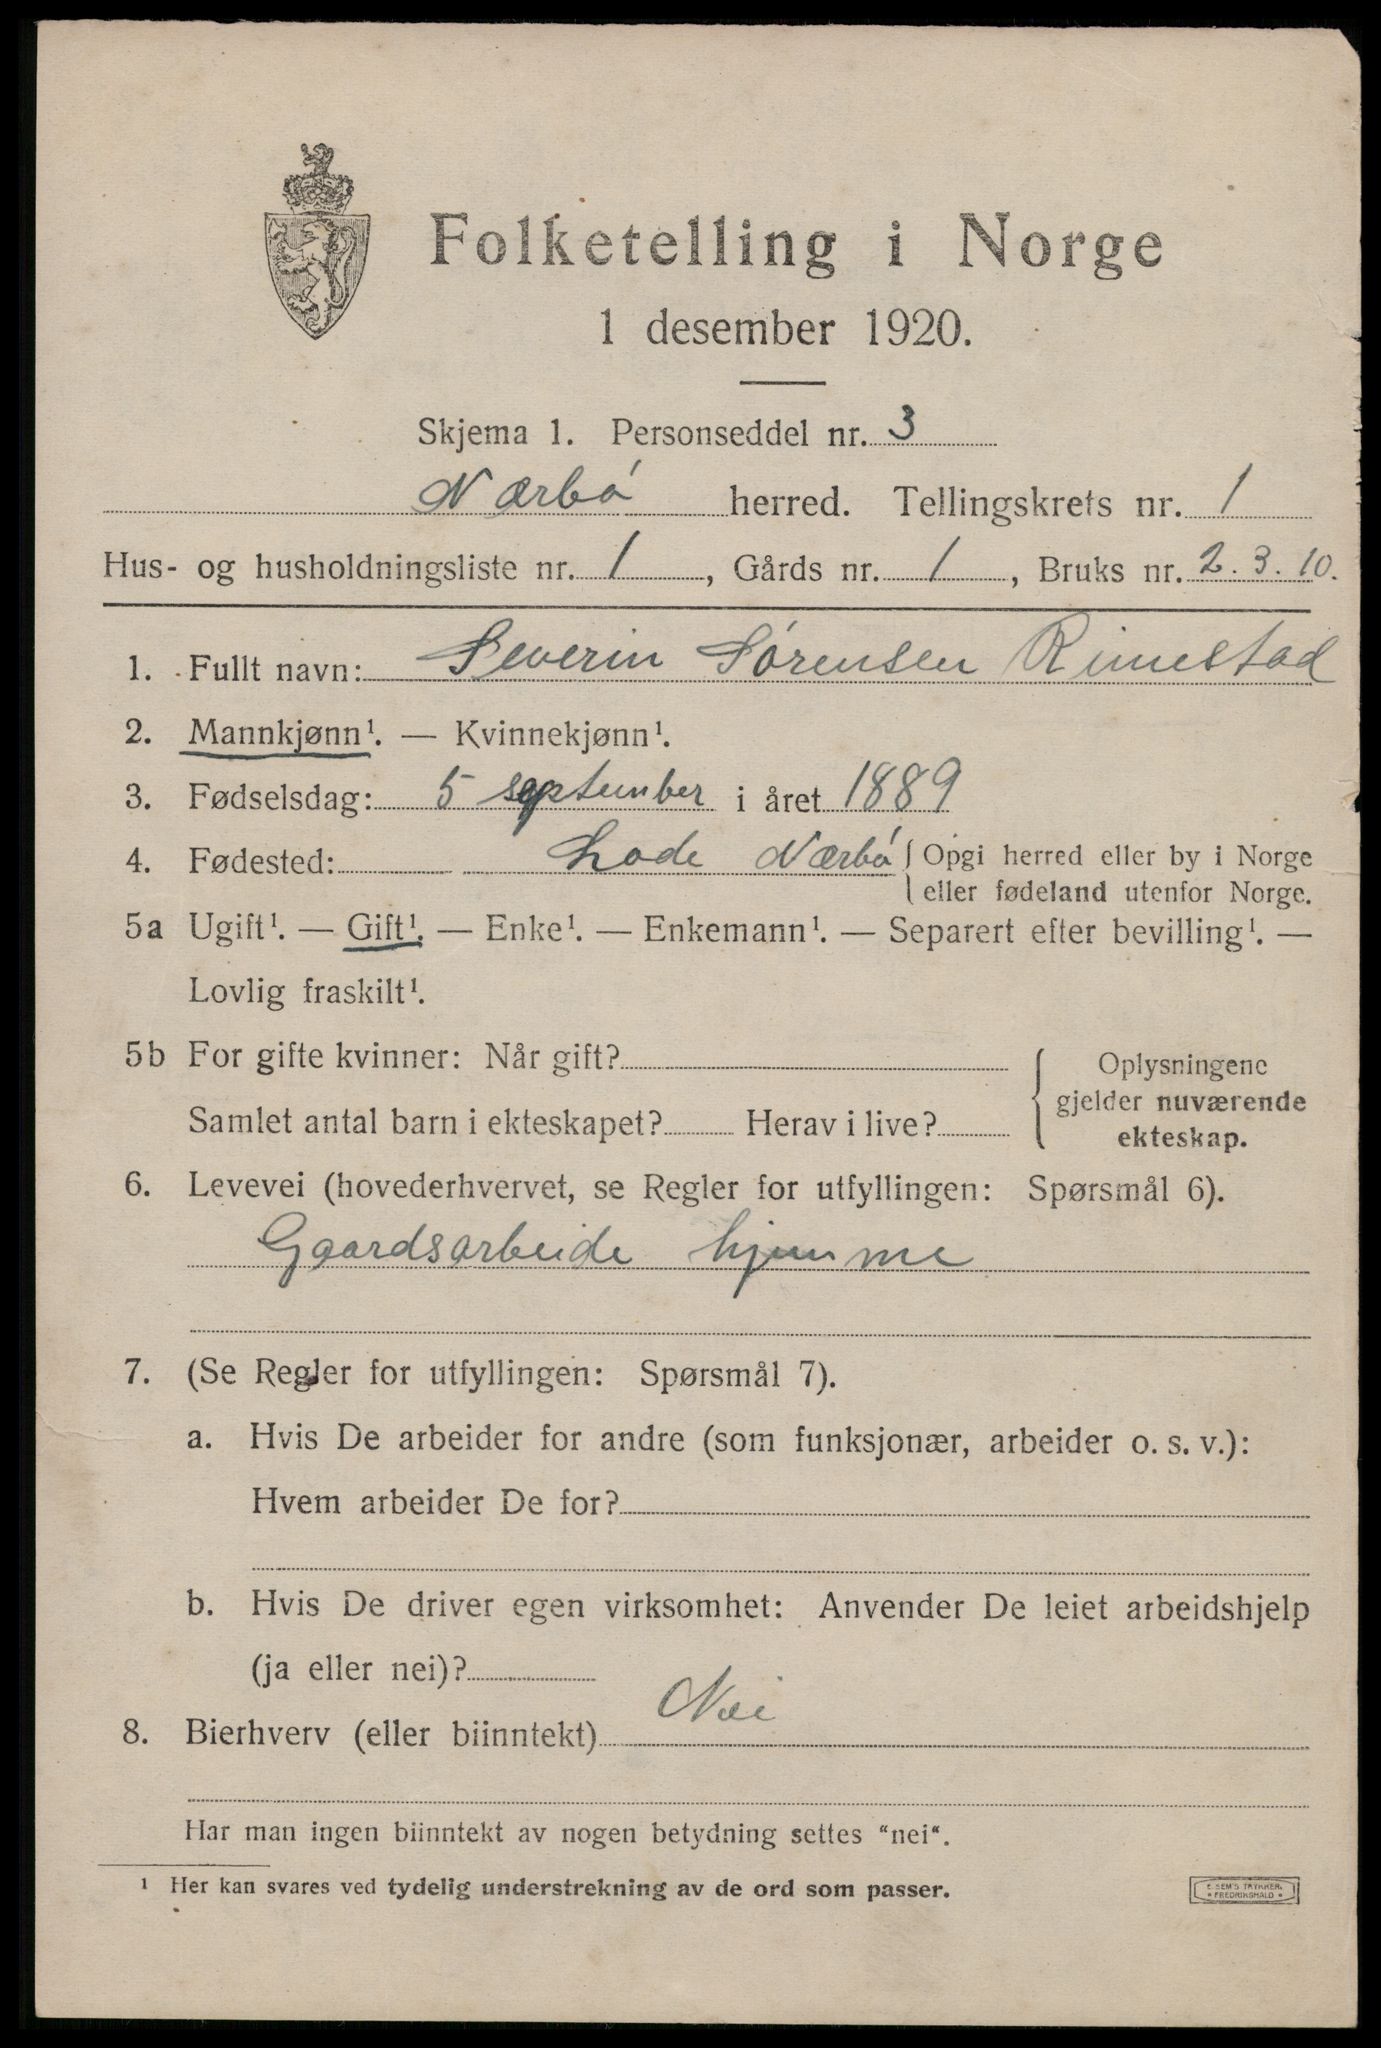 Folketelling i Norge
1 desember 1920.
Skjema 1. Personseddel nr. 3
Nærbó herred. Tellingskrets nr. 1
Hus- og husholdningsliste nr. 1, Gårds nr. 1, Bruks nr. 2.3.10.
1. Fullt navn: Severin Sórensen Rimestad
2. Mannkjønn¹. — Kvinnekjønn¹.
3. Fødselsdag: 5 september i året 1889
4. Fødested: Lode Nærbó { Opgi herred eller by i Norge
eller fødeland utenfor Norge.
5a Ugift¹. — Gift¹. — Enke¹. — Enkemann¹. — Separert efter bevilling¹. —
Lovlig fraskilt¹.
5b For gifte kvinner: Når gift?
Samlet antal barn i ekteskapet? Herav i live?
{ Oplysningene
gjelder nuværende
ekteskap.
6. Levevei (hovederhvervet, se Regler for utfyllingen: Spørsmål 6).
Gaardsarbeide hjemme
7. (Se Regler for utfyllingen: Spørsmål 7).
a. Hvis De arbeider for andre (som funksjonær, arbeider o. s. v.):
Hvem arbeider De for?
b. Hvis De driver egen virksomhet: Anvender De leiet arbeidshjelp
(ja eller nei)?
8. Bierhverv (eller biinntekt) Nei
Har man ingen biinntekt av nogen betydning settes "nei".
¹ Her kan svares ved tydelig understrekning av de ord som passer.
E. SEM'S TRYKKERI
* FREDRIKSHALD *